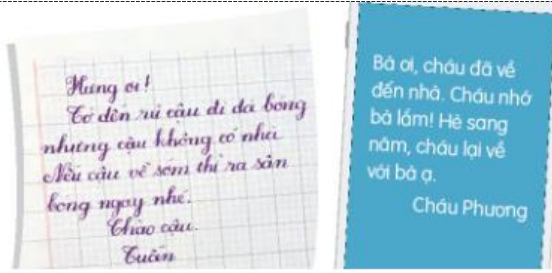 Hùng ơi!
Tớ đến rủ cậu đi đá bóng
nhưng cậu không có nhà.
Nếu cậu về sớm thì ra sân
bóng ngay nhé.
Chào cậu.
Tuấn
Bà ơi, cháu đã về
đến nhà. Cháu nhớ
bà lắm! Hè sang
năm, cháu lại về
với bà ạ.
Cháu Phương